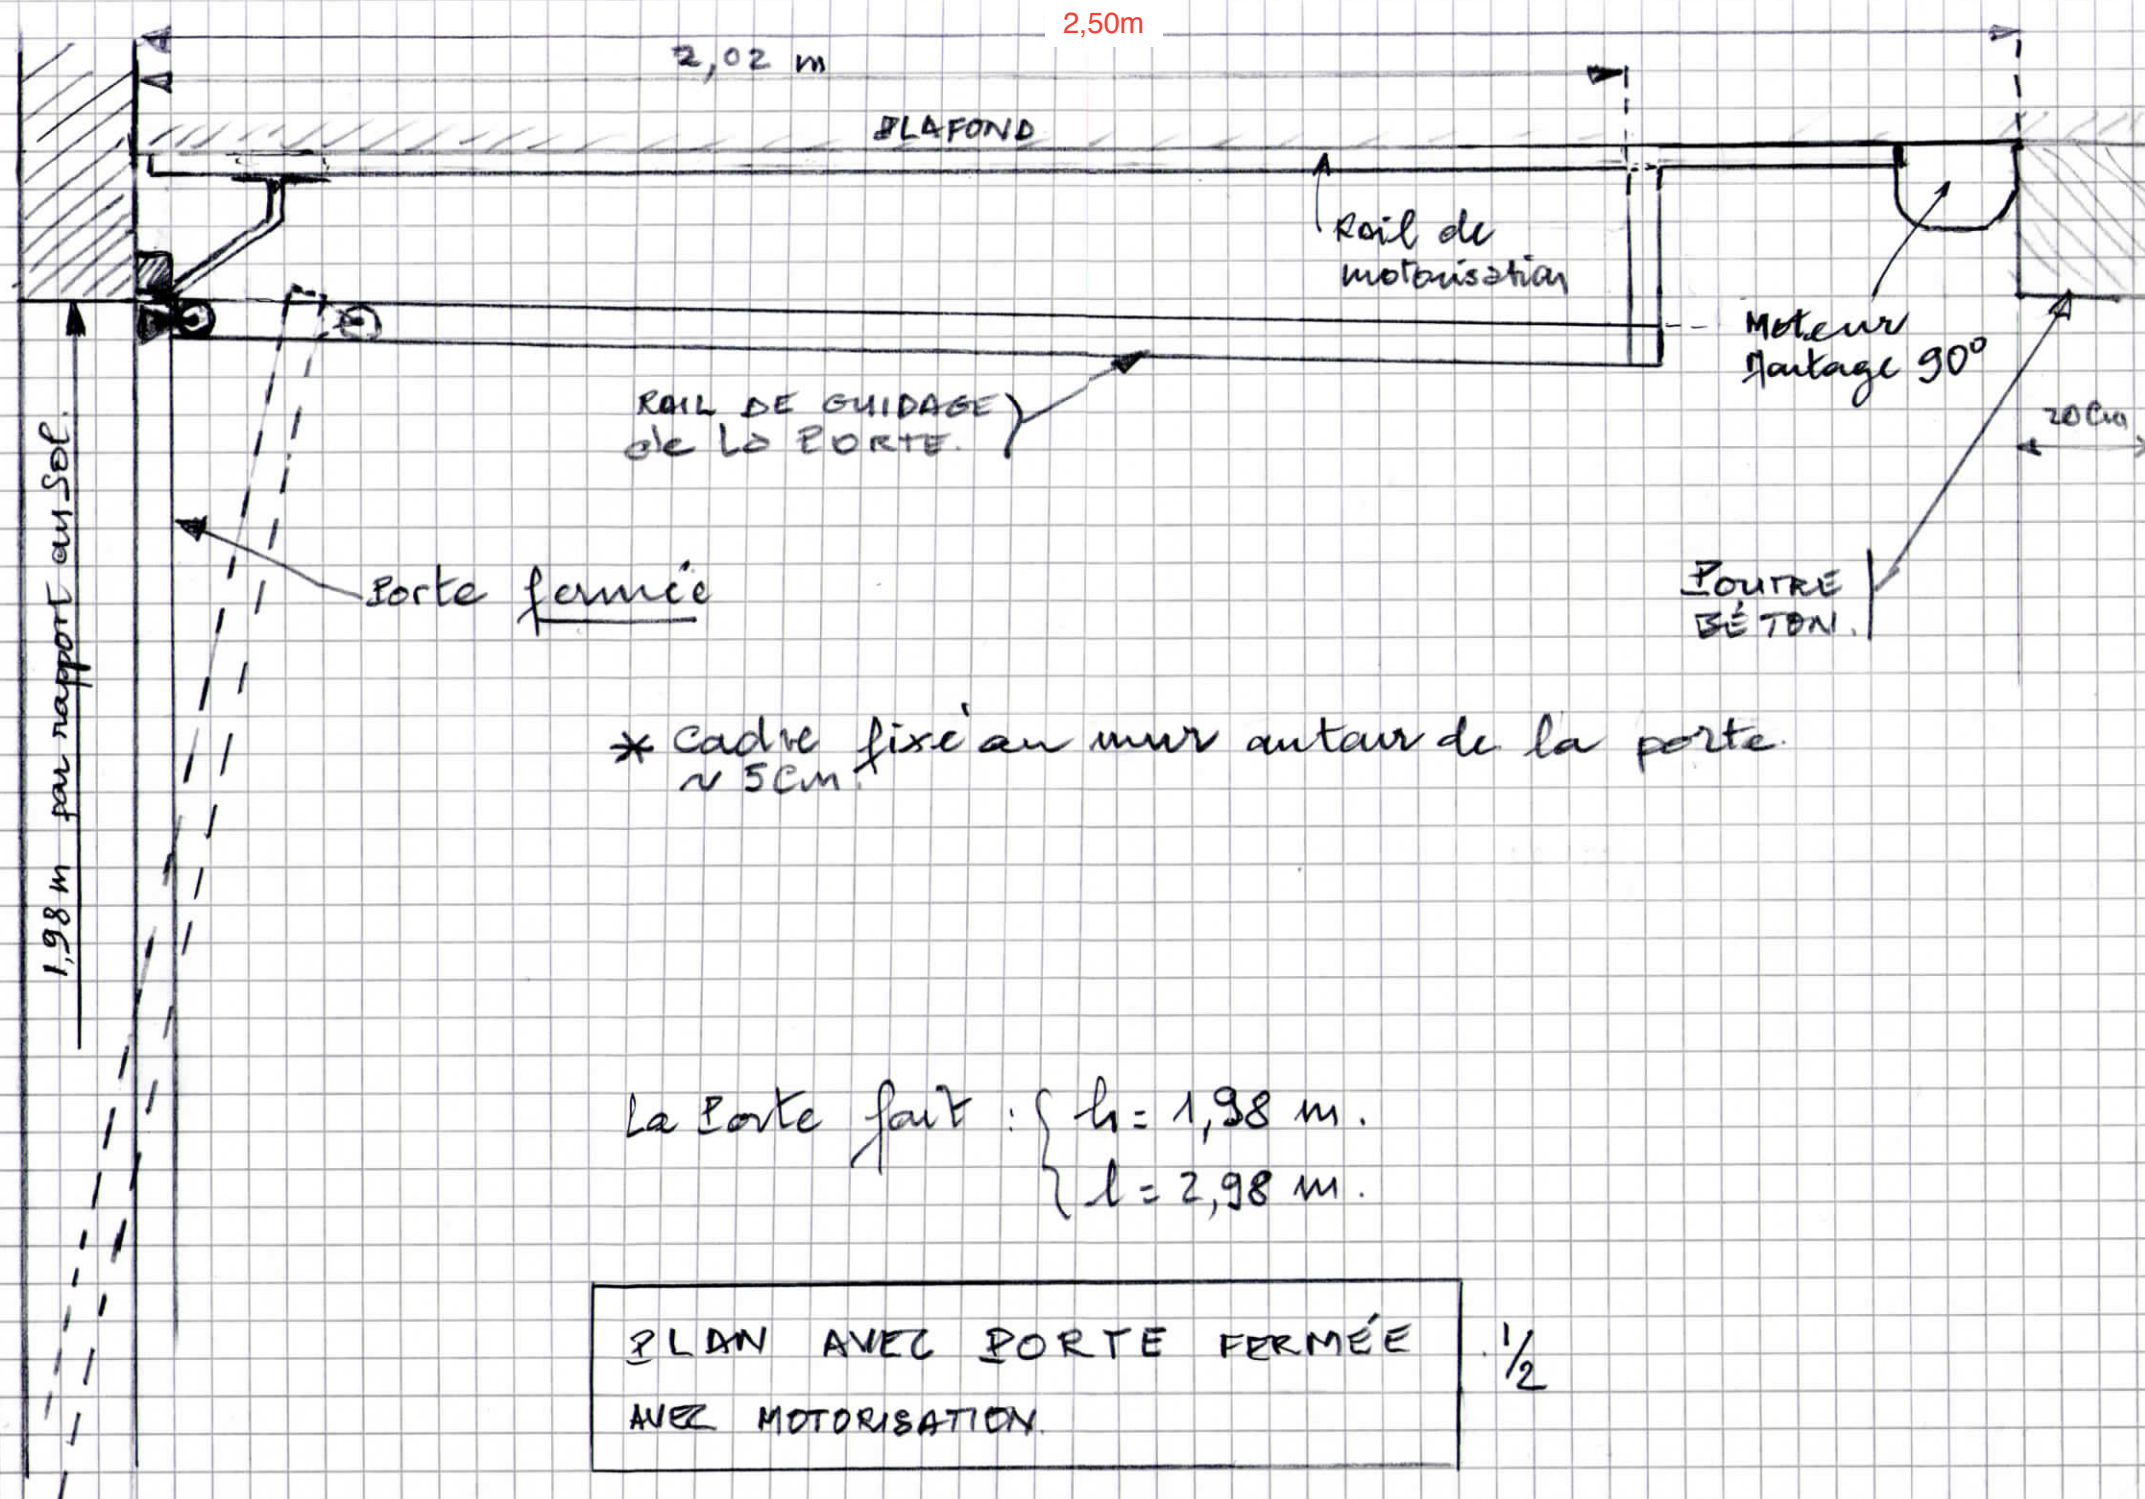 2,50m
2,02 m
PLAFOND
Rail de
motorisation
Moteur
Montage 90°
20 Cm
RAIL DE GUIDAGE
de La PORTE.
1,98 m par rapport au sol.
Porte fermée
POUTRE
BÉTON.
* Cadre fixé au mur autour de la porte.
~ 5 Cm.
La Porte fait : { h = 1,98 m.
l = 2,98 m.
PLAN AVEC PORTE FERMÉE
AVEC MOTORISATION.
1/2